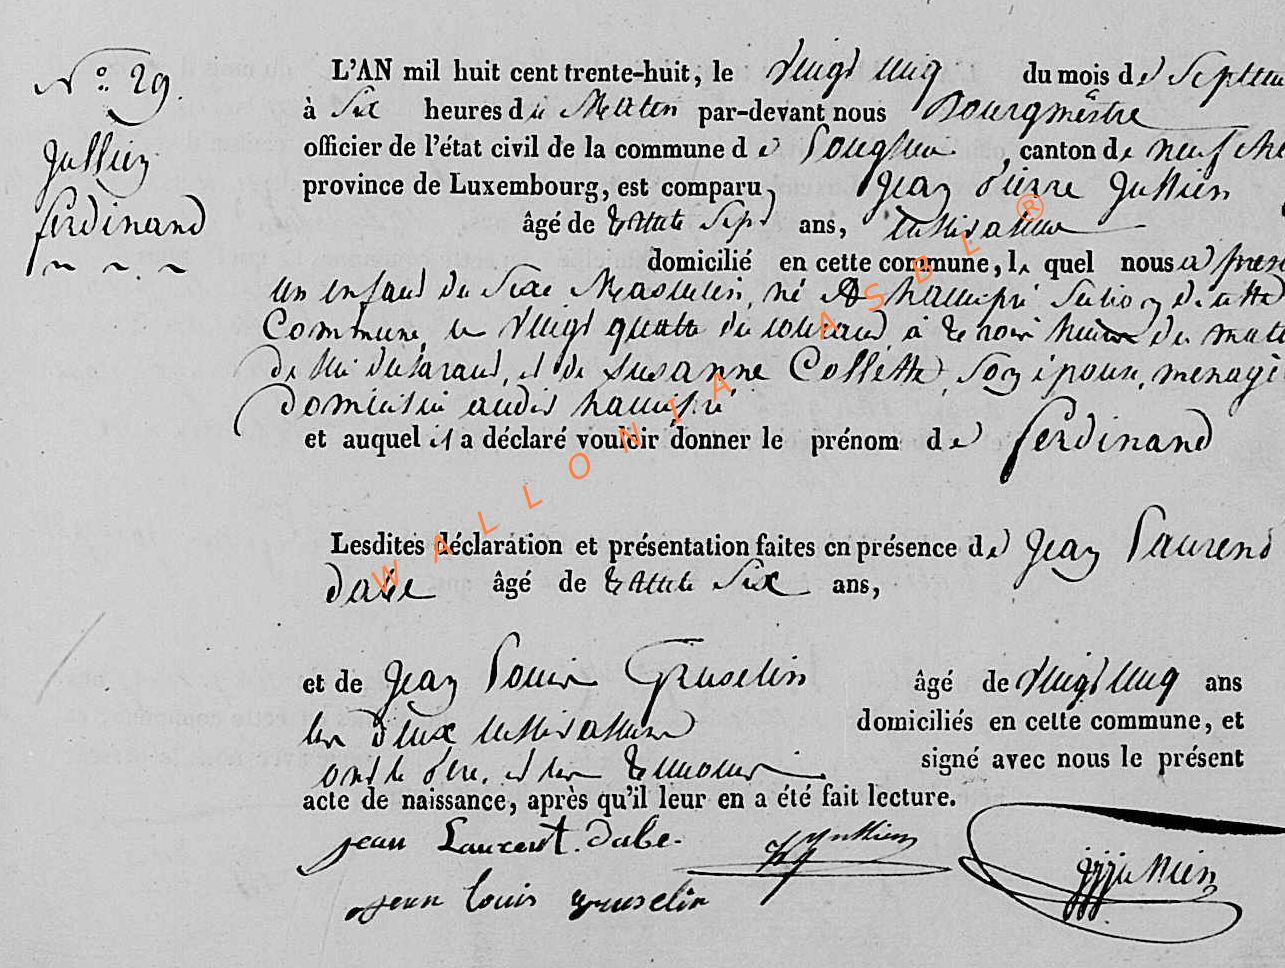 N° 29.
Jullien
ferdinand
L'AN mil huit cent trente-huit, le vingt cinq du mois de Septem
à Six heures du Matin par-devant nous Bourgmestre
officier de l'état civil de la commune de Longlier, canton de neufchâ
province de Luxembourg, est comparu Jean Pierre Jullien
âgé de trente Sept ans, cultivateur
domicilié en cette commune, lequel nous a présen
un enfant du Sexe Masculin, né à hamipré Section de cette
Commune, le vingt quatre du courant, à trois heures du matin
de lui déclarant, et de Susanne Collette, Son épouse, menagè
Domiciliée audit hamipré
et auquel il a déclaré vouloir donner le prénom de ferdinand
Lesdites déclaration et présentation faites en présence de Jean Laurend
dabe âgé de trente Six ans,
et de Jean Louis Gruselin âgé de vingt cinq ans
les deux cultivateurs domiciliés en cette commune, et
ont le père, et les temoins signé avec nous le présent
acte de naissance, après qu'il leur en a été fait lecture.
jean Laurent. dabe.
jean louis gruselin
WALLONIA ASBL ®